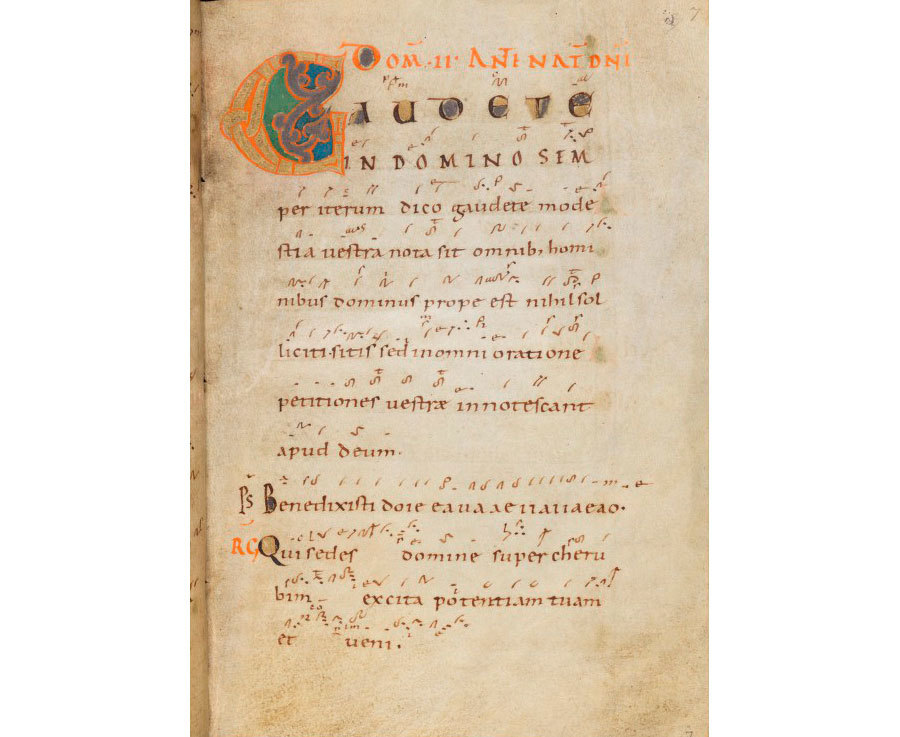 7
DOM̄·II· ANT̄ NAT̄ DNI
GAUDETE
IN DOMINO SEM
per iterum dico gaudete mode
stia uestra nota sit omnib; homi
nibus dominus prope est nihil sol
liciti sitis sed in omni oratione
petitiones uestrae innotescant
apud deum.
Ps Benedixisti dn̄e e a u a . ae u a u a e a o.
RG Qui sedes domine super cheru
bim excita potentiam tuam
et ueni.